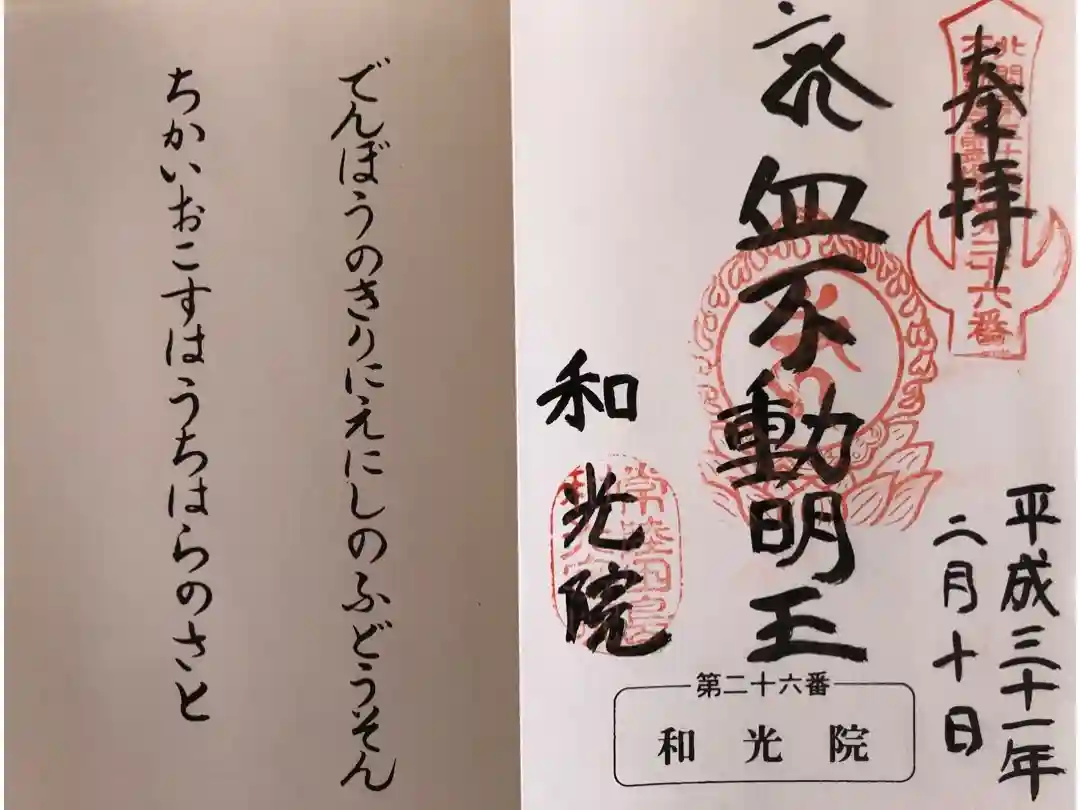 奉拝
第二十六番
平成三十一年
二月十日
血不動明王
和光院
第二十六番
和光院
でんぼうのきりにえにしのふどうそん
ちかいおこすはうちはらのさと